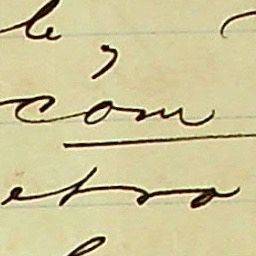 le,
com
etro